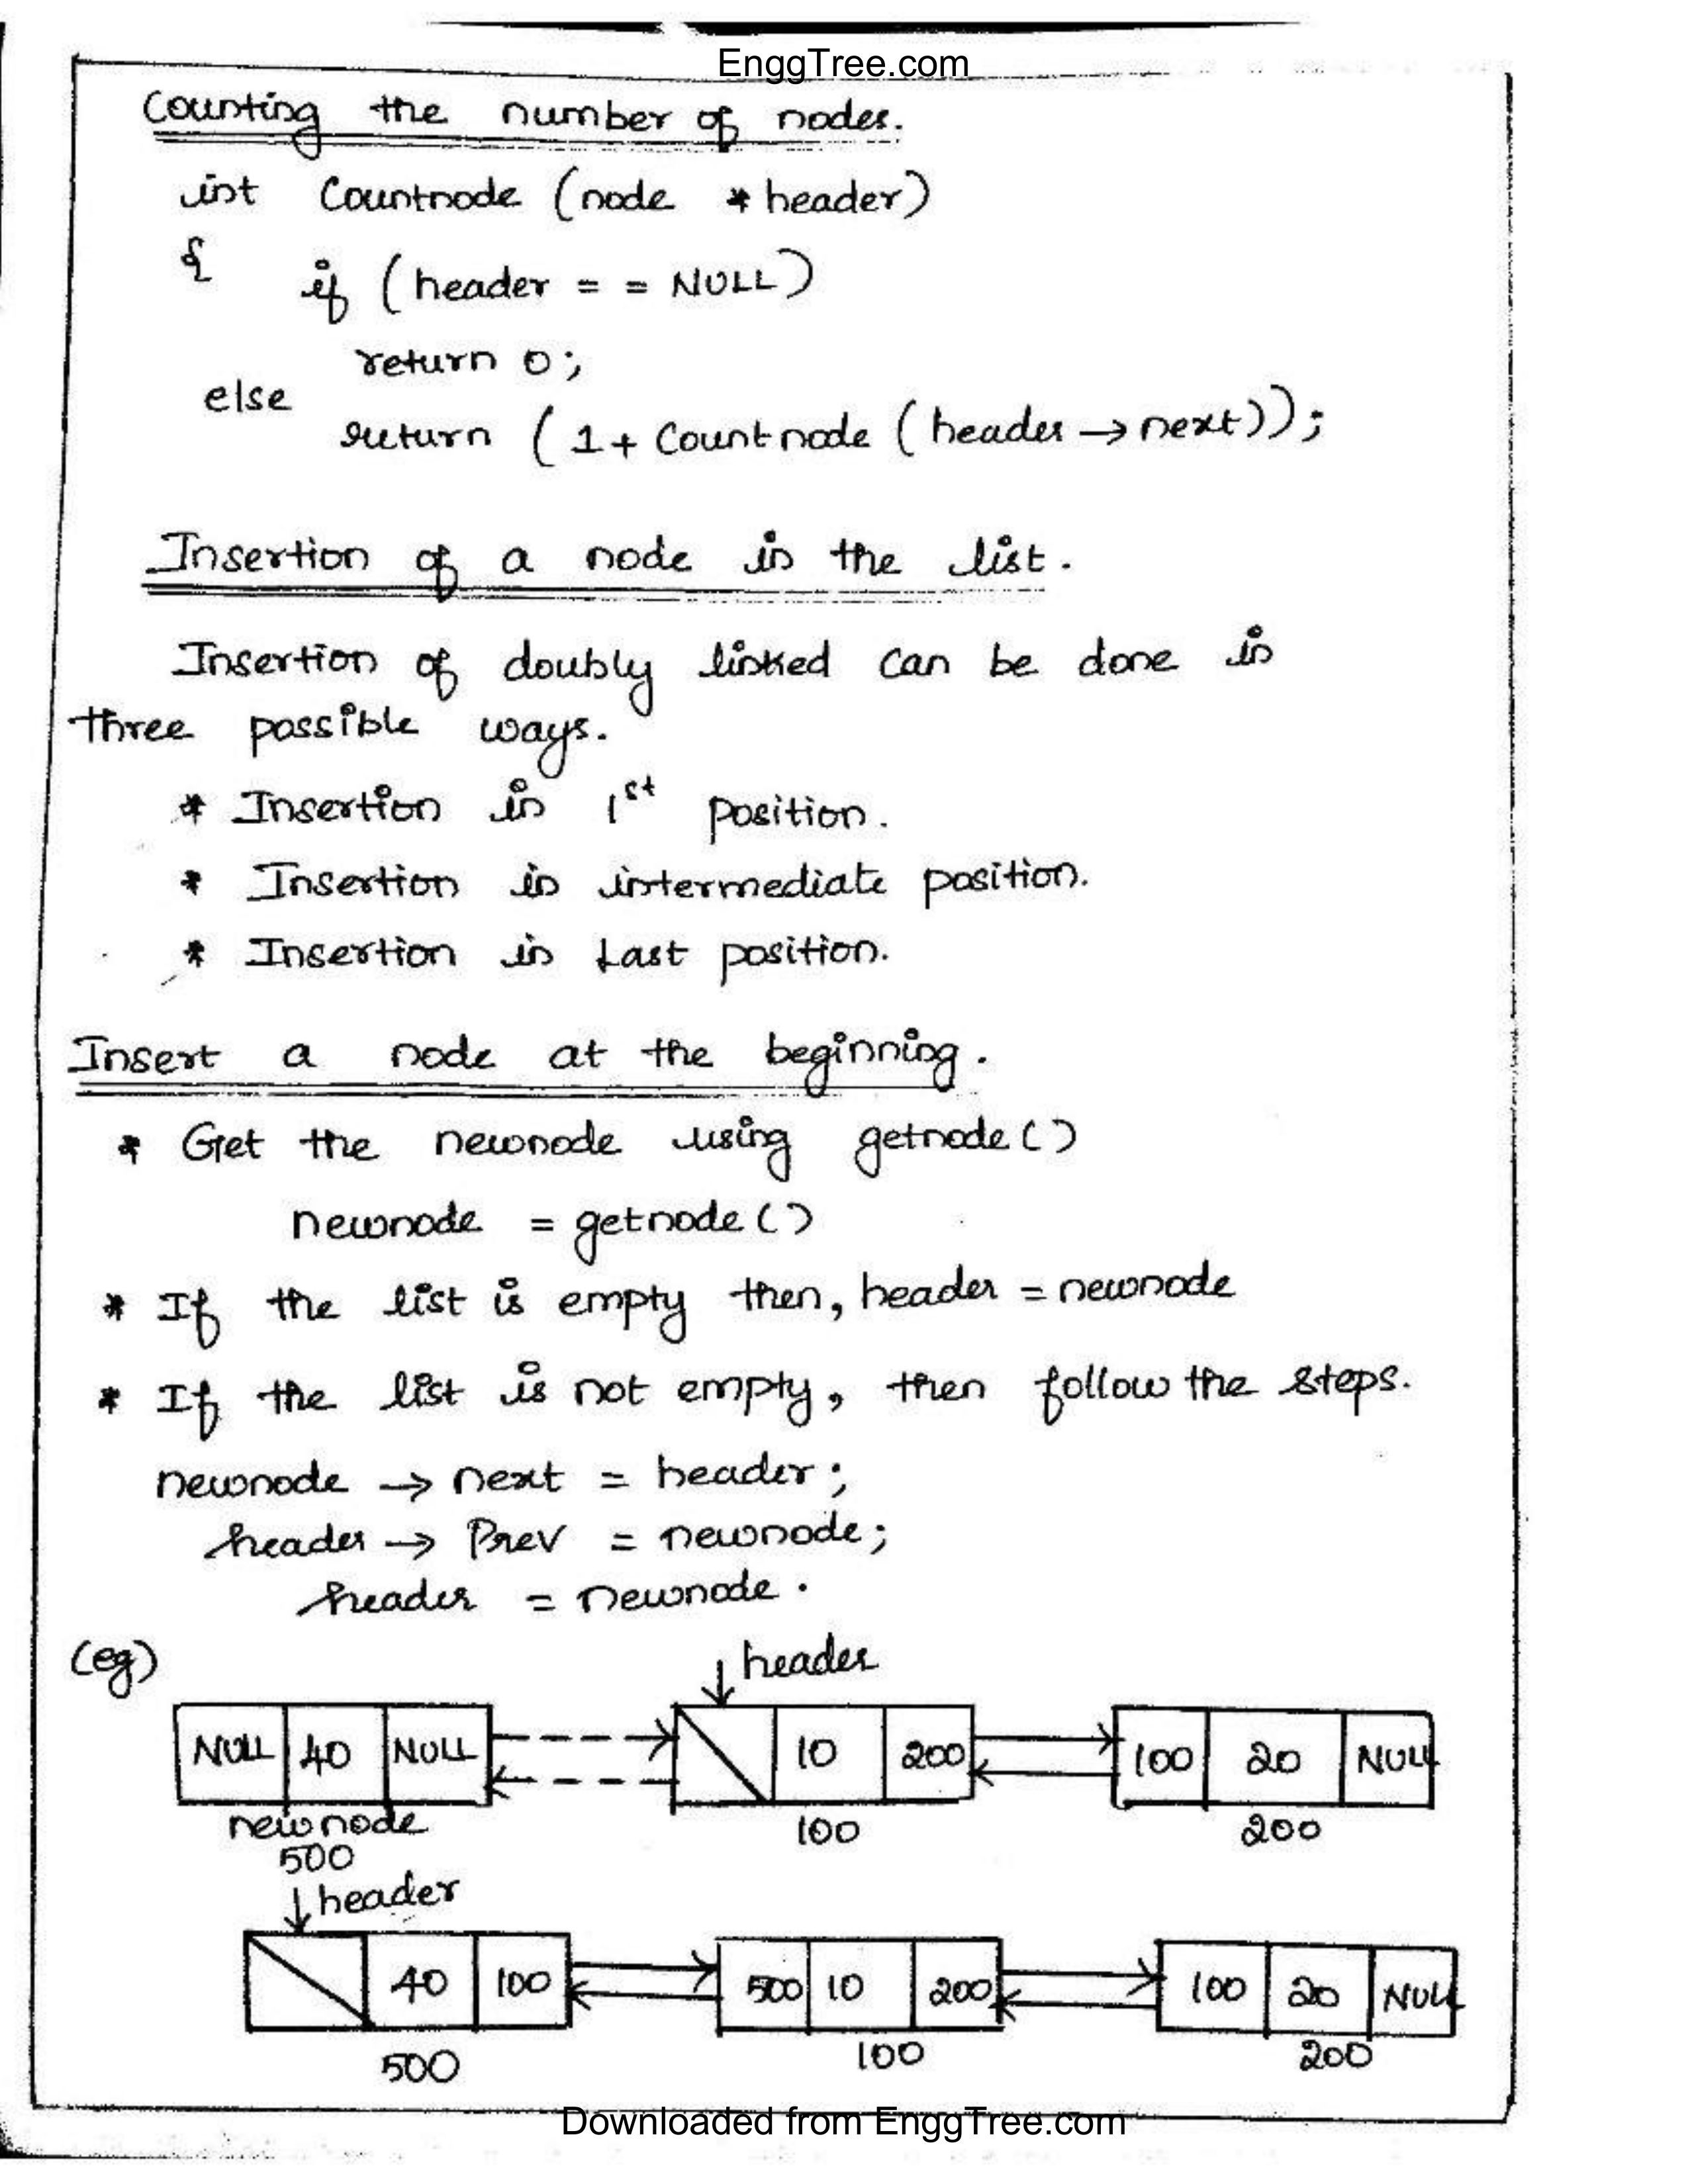 EnggTree.com
Counting the number of nodes.
int Countnode (node * header)
{ if (header = = NULL)
return 0;
else
return (1 + Countnode (header → next));
Insertion of a node in the list.
Insertion of doubly linked can be done in
three possible ways.
* Insertion in 1st position.
* Insertion in intermediate position.
* Insertion in Last position.
Insert a node at the beginning.
* Get the newnode using getnode ( )
newnode = getnode ( )
* If the list is empty then, header = newnode
* If the list is not empty, then follow the steps.
newnode → next = header;
header → Prev = newnode;
header = newnode.
(eg)
header
NULL 40 NULL 10 200 100 20 NULL
newnode 100 200
500
header
40 100 500 10 200 100 20 NULL
500 100 200
Downloaded from EnggTree.com